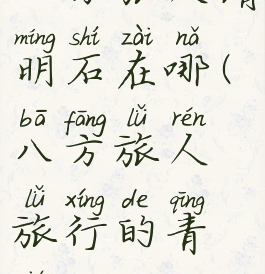 míng shí zài nǎ
明石在哪(
bā fāng lǚ rén
八方旅人
lǚ xíng de qīng
旅行的青